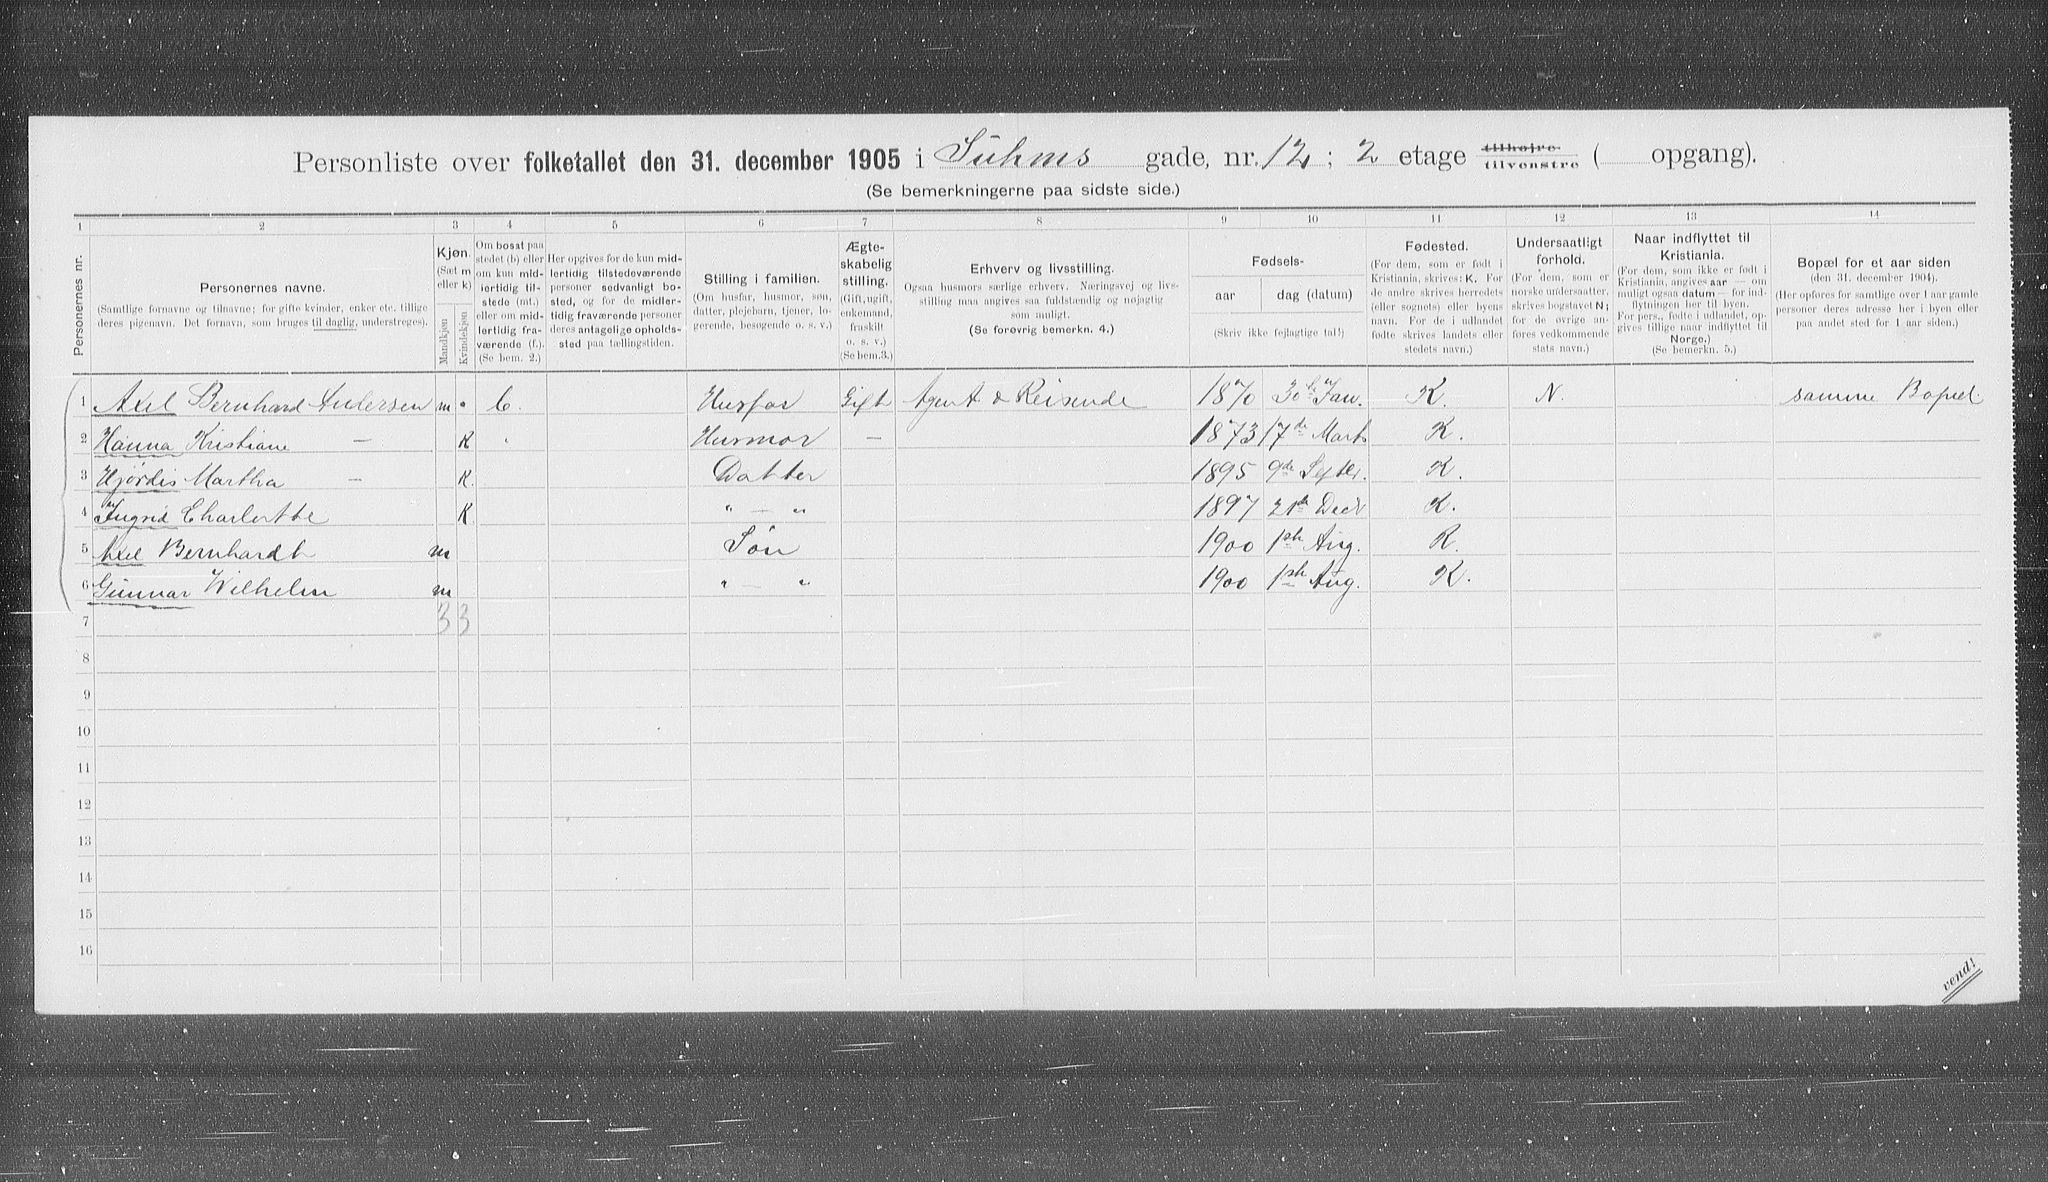 Personliste over folketallet den 31. december 1905 i Suhms gade, nr. 12 ; 2 etage tilhøjre tilvenstre ( opgang).
(Se bemerkningerne paa sidste side.)
1 2 3 4 5 6 7 8 9 10 11 12 13 14
Personernes nr.
Personernes navne.
(Samtlige fornavne og tilnavne; for gifte kvinder, enker etc. tillige
deres pigenavn. Det fornavn, som bruges til daglig, understreges).
Kjøn.
(Sæt m
eller k)
Mandkjøn
Kvindekjøn
Om bosat paa
stedet (b) eller
om kun mid-
lertidig til-
stede (mt.)
eller om mid-
lertidig fra-
værende (f.).
(Se bem. 2.)
Her opgives for de kun mid-
lertidig tilstedeværende
personer sedvanlig bo-
sted, og for de midler-
tidig fraværende personer
deres antagelige opholds-
sted paa tællingstiden.
Stilling i familien.
(Om husfar, husmor, søn,
datter, plejebarn, tjener, lo-
gerende, besøgende o. s. v.)
Ægte-
skabelig
stilling.
(Gift, ugift,
enkemand,
fraskilt
o. s. v.)
(Se bem.3.)
Erhverv og livsstilling.
Ogsaa husmors særlige erhverv. Næringsvej og livs-
stilling maa angives saa fuldstændig og nøjagtig
som muligt.
(Se forøvrig bemerkn. 4.)
Fødsels-
aar dag (datum)
(Skriv ikke fejlagtige tal!)
Fødested.
(For dem, som er født i
Kristiania, skrives: K. For
de andre skrives herredets
(eller sognets) eller byens
navn. For de i udlandet
fødte skrives landets eller
stedets navn.)
Undersaatligt
forhold.
(For dem, som er
norske undersaatter,
skrives bogstavet N;
for de øvrige an-
føres vedkommende
stats navn.)
Naar indflyttet til
Kristiania.
(For dem, som ikke er født i
Kristiania, angives aar — om
muligt ogsaa datum — for ind-
flytningen her til byen.
For pers., fødte i udlandet, op-
gives tillige naar indflyttet til
Norge.)
(Se bemerkn. 5.)
Bopæl for et aar siden
(den 31. december 1904).
(Her opføres for samtlige over 1 aar gamle
personer deres adresse her i byen eller
paa andet sted for 1 aar siden.)
1 Axel Bernhard Andersen m b. Husfar Gift Agent & Reisende 1870 30te Jan. K. N. samme Bopæl.
2 Hanna Kristiane — K " Husmor — 1873 17de Marts K.
3 Hjördis Martha — K. Datter 1895 9de Septbr. K.
4 Ingrid Charlotte K " — " 1897 21de Decbr K.
5 Axel Bernhardt m Sön 1900 1ste Aug. K.
6 Gunnar Wilhelm m " — " 1900 1ste Aug. K.
7 3 3
8
9
10
11
12
13
14
15
16
vend!